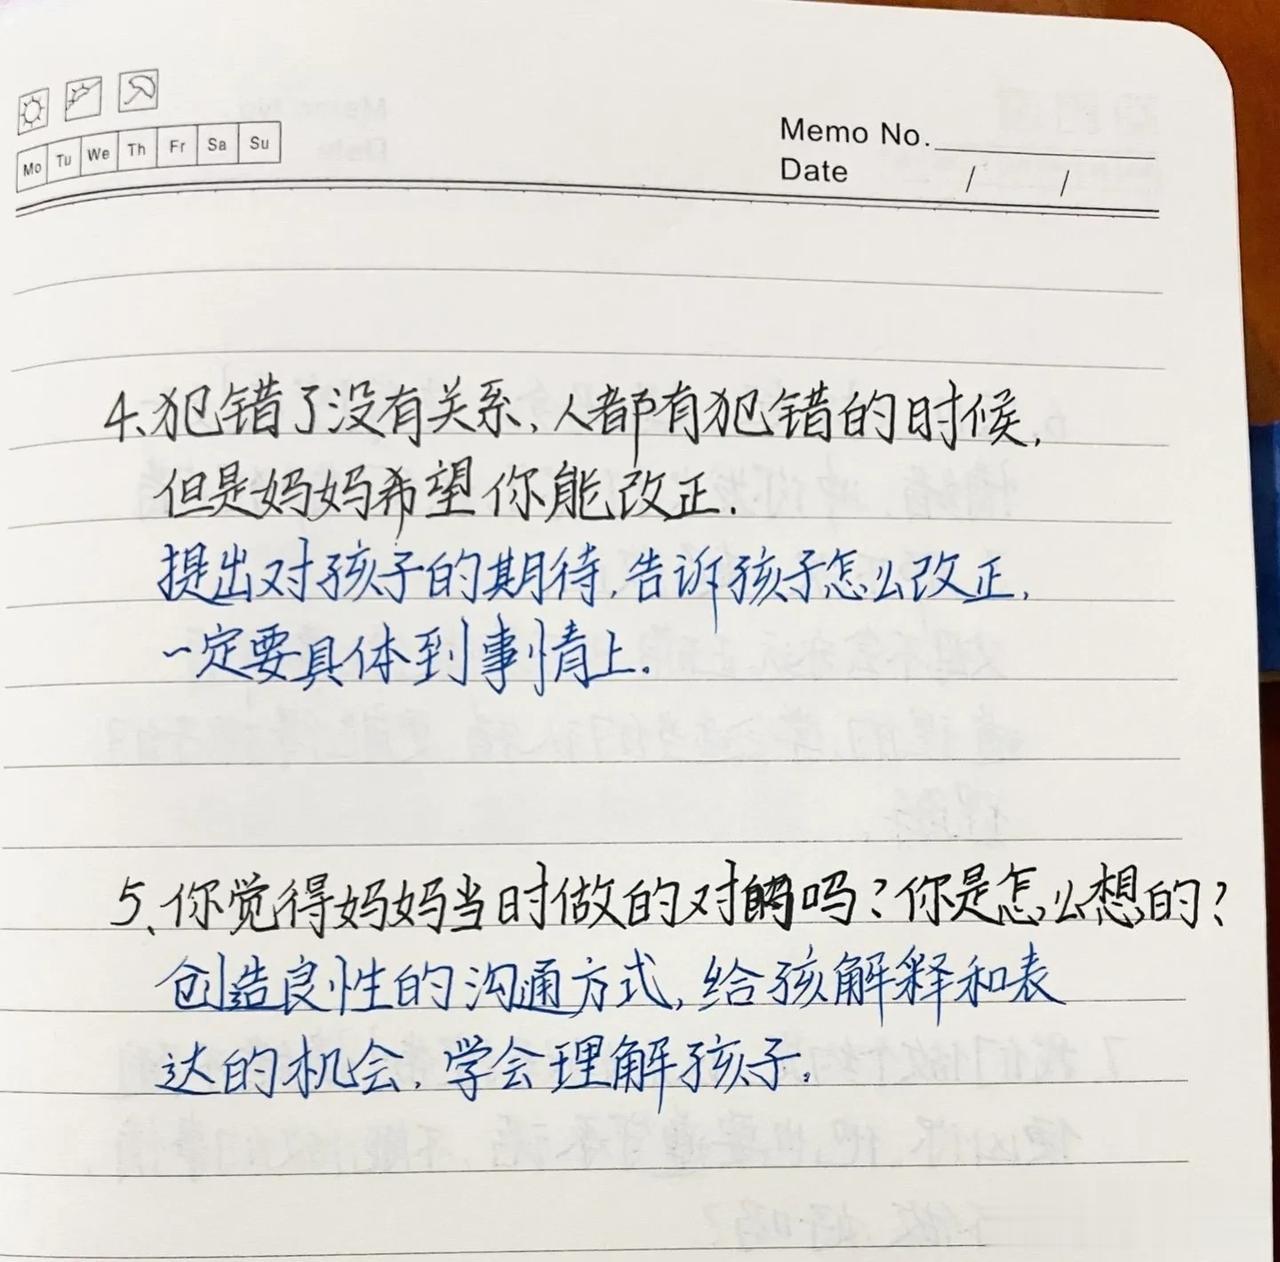 Mo Tu We Th Fr Sa Su
Memo No.
Date / /
4、犯错了没有关系、人都有犯错的时候,
但是妈妈希望你能改正.
提出对孩子的期待,告诉孩子怎么改正,
一定要具体到事情上.
5、你觉得妈妈当时做的对吗?你是怎么想的?
创造良性的沟通方式,给孩解释和表
达的机会,学会理解孩子。